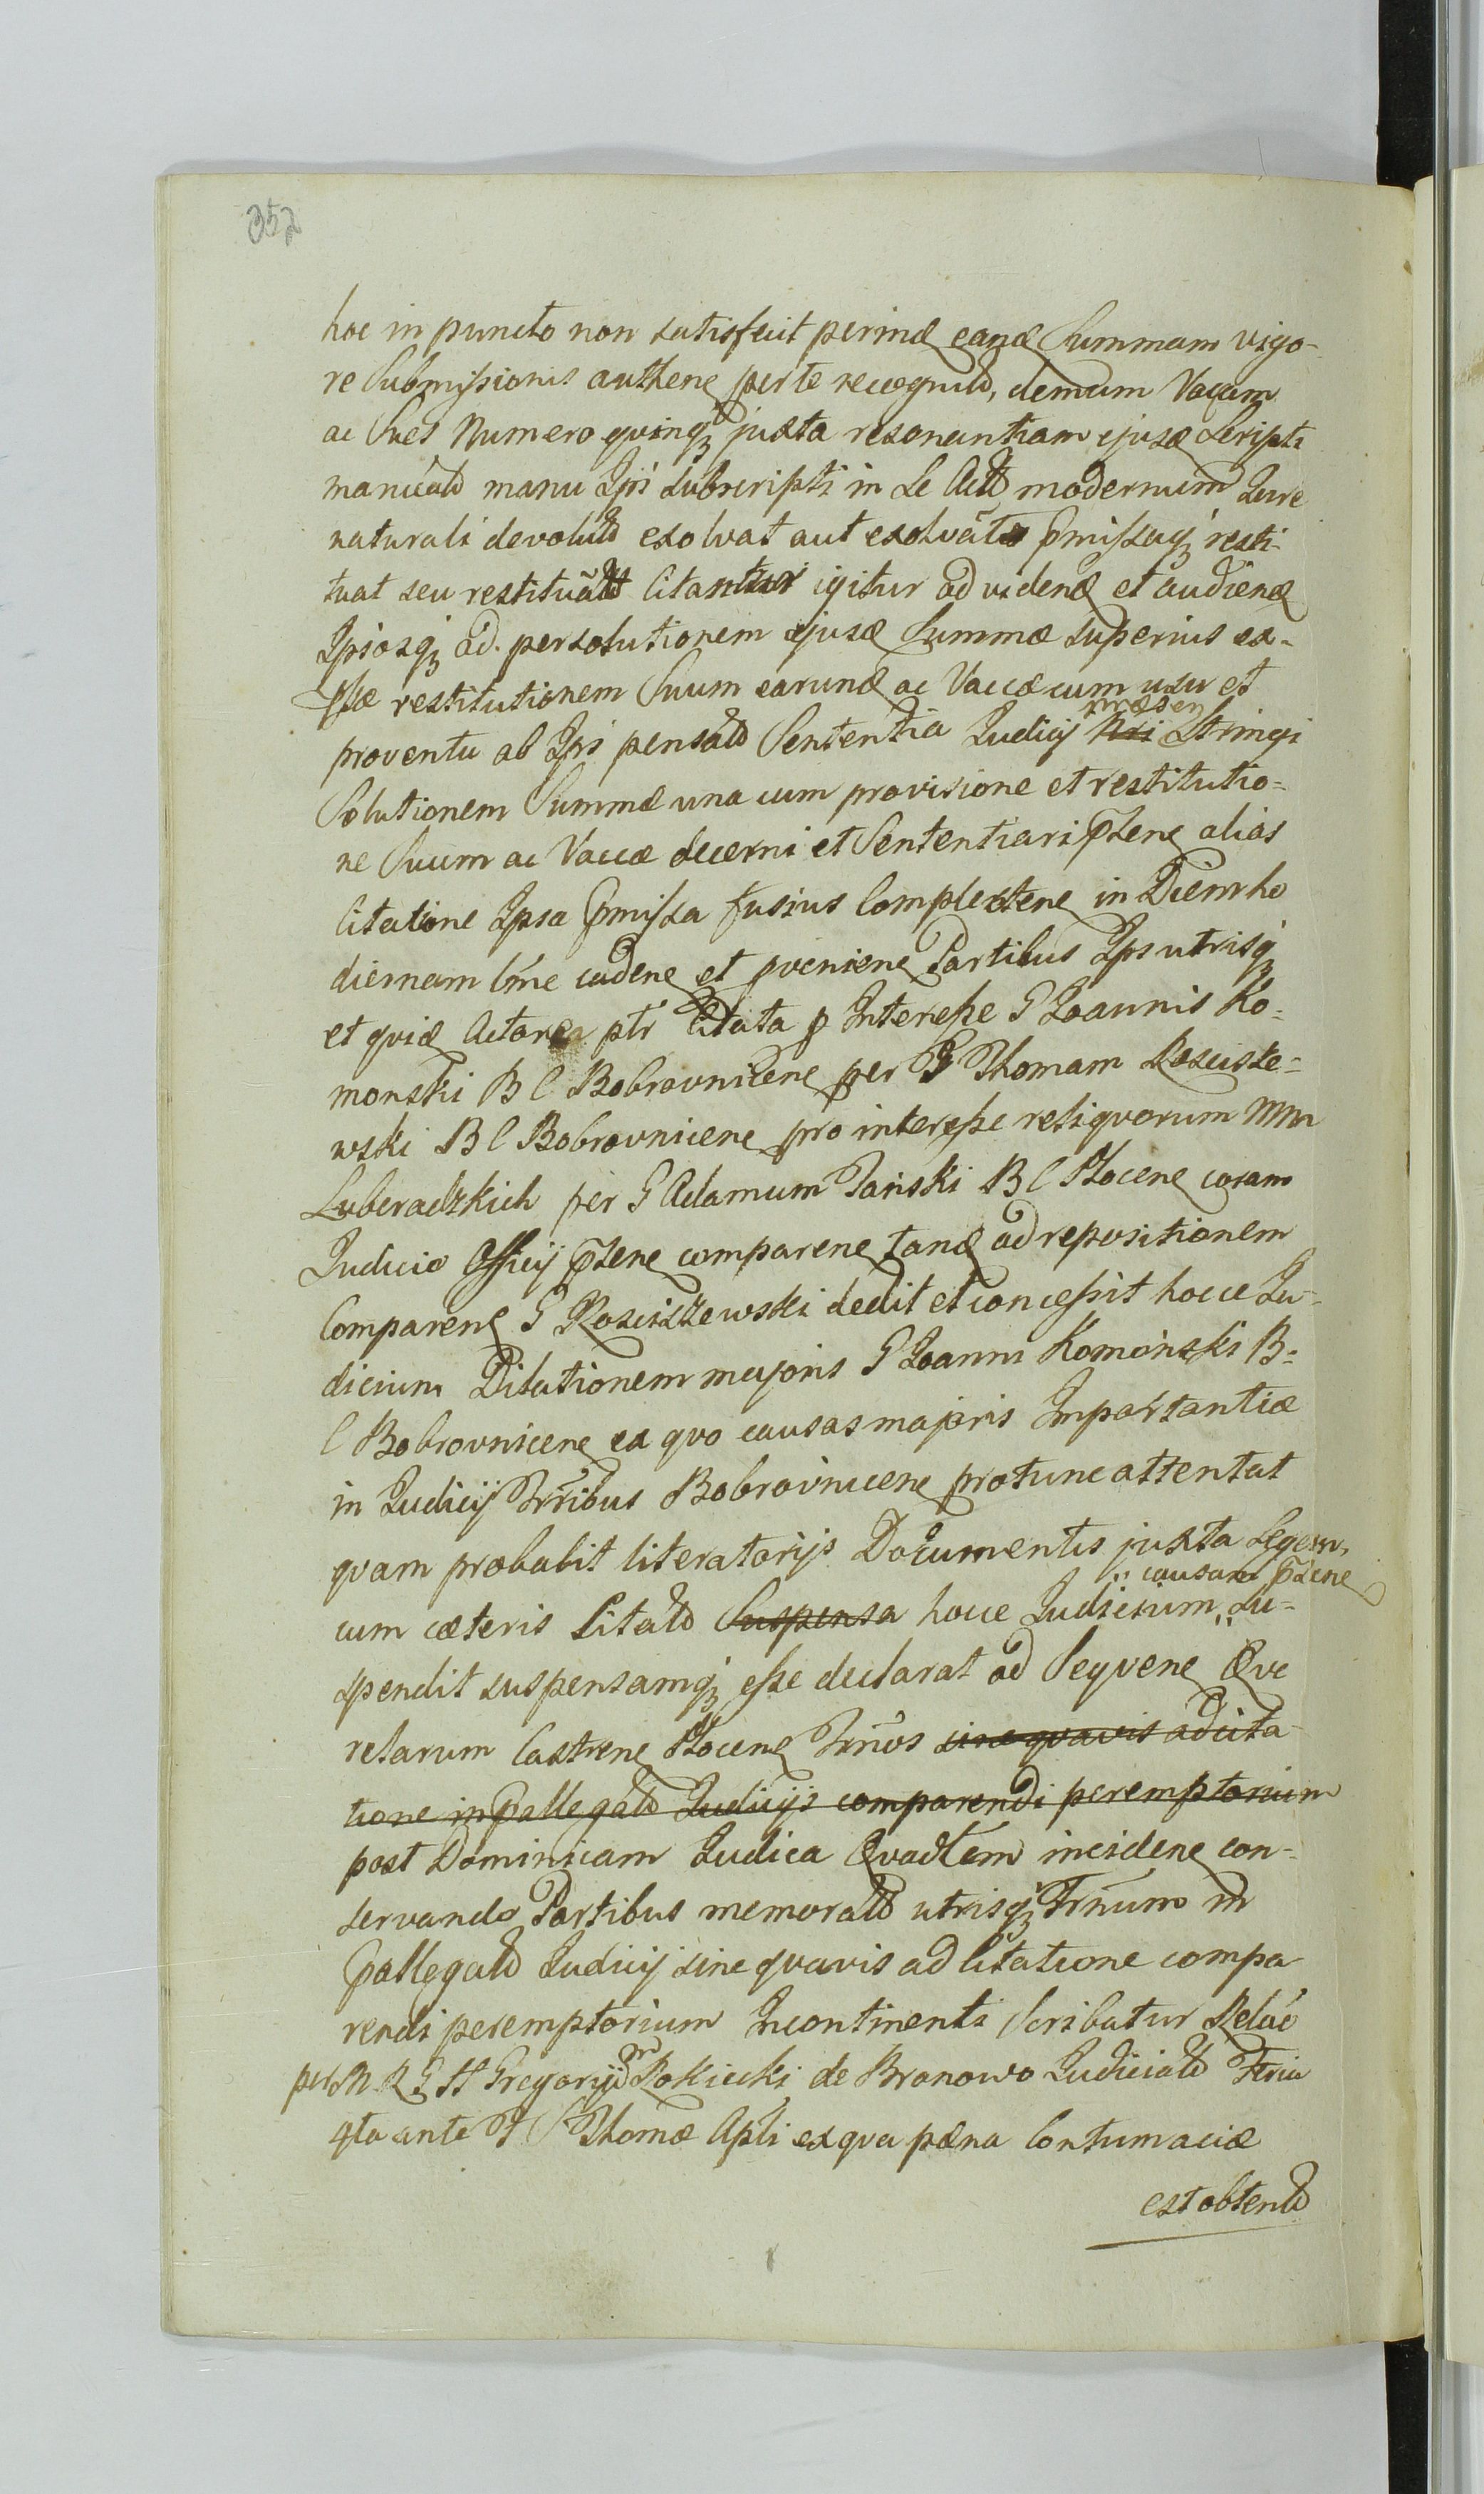 352
hoc in puncto non satisfecit perinđ eanđ Summam vigo-
re Submissionis authene per te recognitã, demum Vaccam
ac Sues Numero quinq̨ juxta resonantiam ejusđ Scripti
manuałł manu Ipsi Subscripti in Se Actt modernum Iure
naturali devolutt exolvat aut exolvãtt pmissaq̨ resti-
tuat seu restituãtt Citantur igitur ad videnđ et audienđ
Ipsosq̨ ad persolutionem ejusđ Summæ superius ex-
ssæ restitutionem Suum earunđ ac Vaccæ cum usu et
proventu ab Ipsi pensatt Sententia Iudicij Nri præsen Stringi
Solutionem Summæ una cum provisione et restitutio-
ne Suum ac Vaccæ decerni et Sententiari p̃sene alias
Citatione Ipsa pmissa fusius Complectene in Diem ho
diernam lr̃me cadene et pveniene Partibus Ips utrisq̨
et quiđ Actorea ptr Citata p Interesse G Ioannis Ko-
monski B C Bobrovnicene per G Thomam Rosciste-
wski B C Bobrovnicene pro interesse reliquorum Mm
Luberadzkich per G Adamum Tański B C Płocene coram
Iudicio Officij p̃sene comparene tanđ ad repositionem
Comparene G Rosciszewski dedit et concessit hocce Iu-
dicium Dilationem majoris G Ioanni Komoński B-
C Bobrovnicene ex quo causas majoris Importantiæ
in Iudicij Trr̃ibus Bobrovnicene protunc attentat
quam probabit literatorijs Documentis juxta Legem,
cum cæteris Citałł Suspensa hocce Iudicium causam p̃sene Su-
spendit suspensamq̨ esse declarat ad Seqvene Qve
relarum Castrene Płocene Trm̃os sine quavis adcita-
tione in p̃allegatt Iudicijs comparendi peremptorium
post Dominicam Iudica Qvadłem incidene con-
servando Partibus memoratt utrisq̨ Trm̃um in
p̃allegatt Iudicij sine quavis ad Citatione compa
rendi peremptorium Incontinenti Scribatur Relãc
per M R G H Gregorij Rokicki de Branowo Iudiciałł Feria
4ta ante F S Thomæ Apli ex qva pæna Contumaciæ
est obtentt